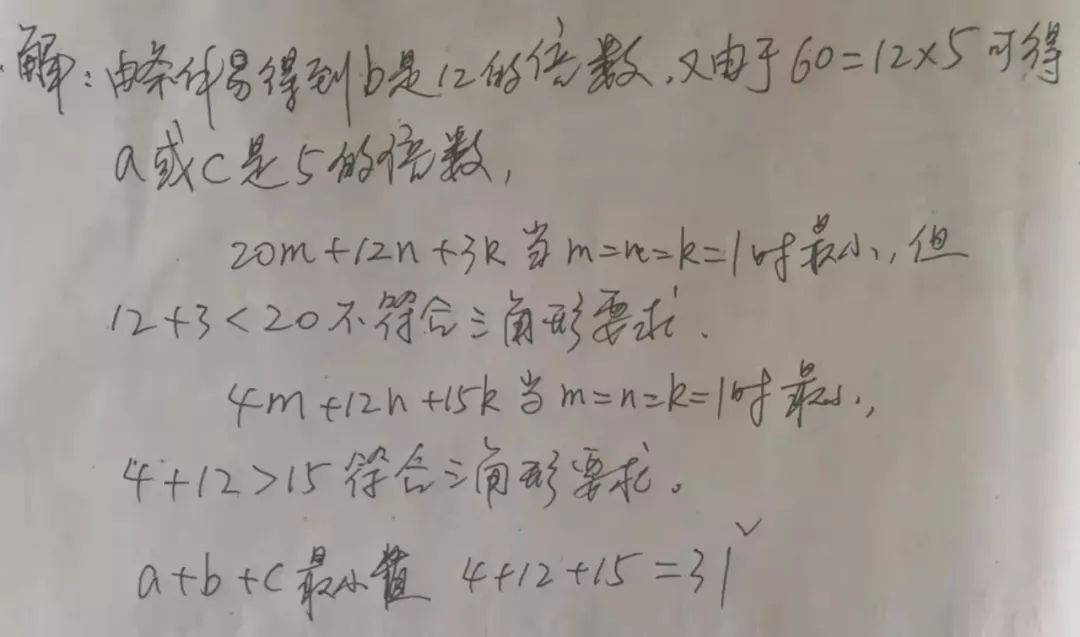 解：由条件易得到b是12的倍数，又由于60=12×5可得
a或c是5的倍数，
20m+12n+3k当m=n=k=1时最小，但
12+3<20不符合三角形要求．
4m+12n+15k当m=n=k=1时最小，
4+12>15符合三角形要求。
a+b+c最小值 4+12+15=31